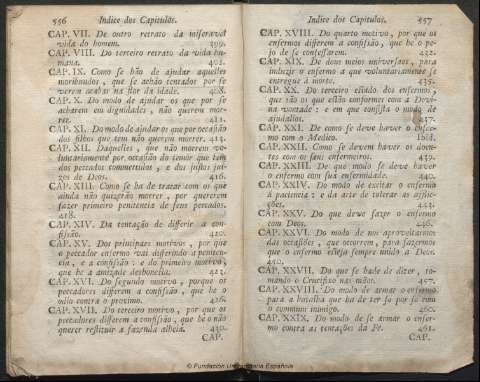 556 Indice dos Capitulos.
CAP. VII. De outro retrato da miseravel
vida do homem. 399.
CAP. VIII. Do terceiro retrato da vida hu-
mana. 402.
CAP. IX. Como se hão de ajudar aquelles
moribundos, que se achão tentados por se
verem acabar na flor da idade. 408.
CAP. X. Do modo de ajudar os que por se
acharem em dignidades, não querem mor-
rer. 411.
CAP. XI. Do modo de ajudar os que por occasião
dos filhos que tem não querem morrer. 413.
CAP. XII. Daquelles, que não morrem vo-
luntariamente por occasião do temor que tem
dos peccados commettidos, e dos justos jui-
zos de Deos. 416.
CAP. XIII. Como se ha de tratar com os que
ainda não quizerão morrer, por quererem
fazer primeiro penitencia de seus peccados.
418.
CAP. XIV. Da tentação de differir a con-
fissão. 420.
CAP. XV. Dos principaes motivos, por que
o peccador enfermo vai differindo a peniten-
cia, e a confissão: e do primeiro motivo,
que he a amizade deshonesta. 423.
CAP. XVI. Do segundo motivo, porque os
peccadores differem a confissão, que he o
odio contra o proximo. 426.
CAP. XVII. Do terceiro motivo, por que os
peccadores differem a confissão, que he o não
querer restituir a fazenda alheia. 430.
CAP.
Indice dos Capitulos. 557
CAP. XVIII. Do quarto motivo, por que os
enfermos differem a confissão, que he o pe-
jo de se confessarem. 432.
CAP. XIX. De dous meios universaes, para
induzir o enfermo a que voluntariamente se
entregue á morte. 435.
CAP. XX. Do terceiro estado dos enfermos,
que são os que estão conformes com a Divi-
na vontade: e em que consista o modo de
ajudallos. 437.
CAP. XXI. De como se deve haver o enfer-
mo com o Medico. Ibid.
CAP. XXII. Como se devem haver os doen-
tes com os seus enfermeiros. 439.
CAP. XXIII. De que modo se deve haver
o enfermo com sua enfermidade. 440.
CAP. XXIV. Do modo de excitar o enfermo
á paciencia: e da arte de tolerar as afflic-
ções. 443.
CAP. XXV. Do que deve fazer o enfermo
com Deos. 446.
CAP. XXVI. Do modo de nos aproveitarmos
das occasiões, que occorrem, para fazermos
que o enfermo esteja sempre unido a Deos.
450.
CAP. XXVII. Do que se hade de dizer, to-
mando o Crucifixo nas mãos. 457.
CAP. XXVIII. Do modo de armar o enfermo
para a batalha que ha de ter so por so com
o commum inimigo. 460.
CAP. XXIX. Do modo de se armar o enfer-
mo contra as tentações da Fé. 461.
CAP.
© Fundación Universitaria Española